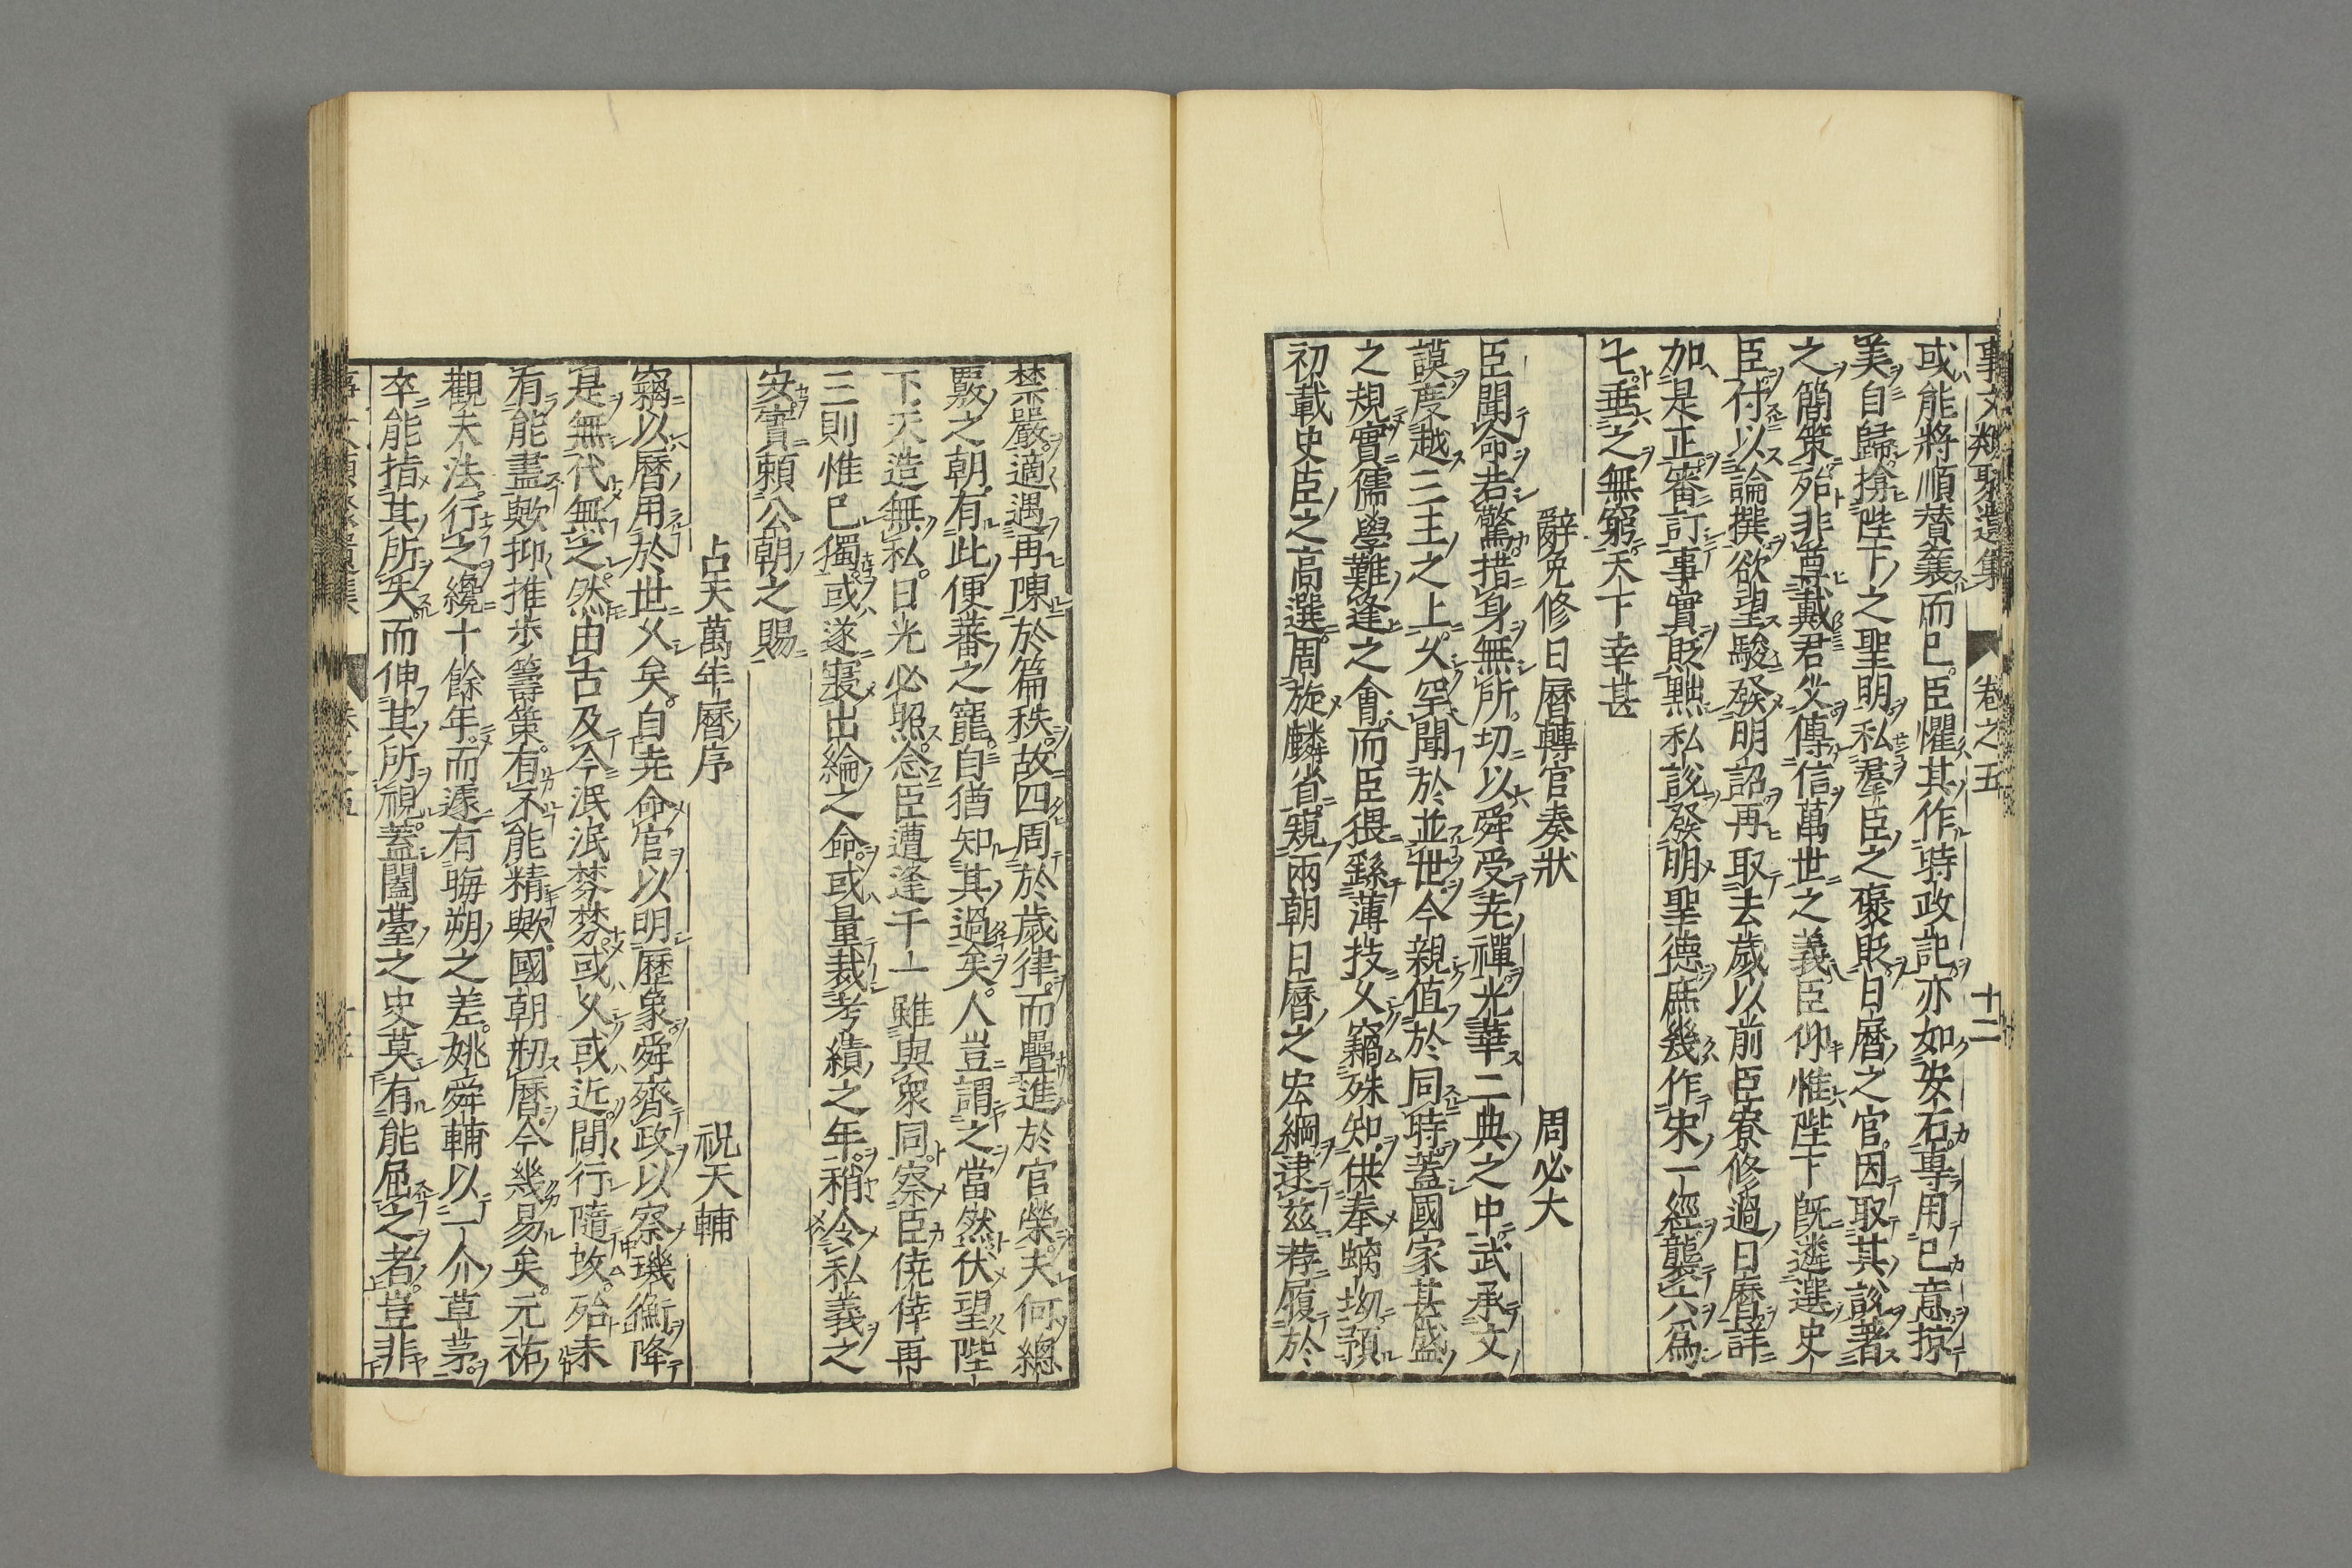 事文類聚遺集 卷之五 十二
或能將順賛襄而已臣懼其作時政記亦如安石專用己意掠
美自歸揜陛下之聖明私羣臣之褒貶日曆之官因取其說著
之簡策殆非尊戴君父傳信萬世之義臣仰惟陛下旣遴選史
臣付以論撰欲望駿發明詔再取去歲以前臣寮修過日曆詳
加是正審訂事實貶黜私說發明聖德庶幾作宋一經襲六爲
七垂之無窮天下幸甚
辭免修日曆轉官奏狀 周必大
臣聞命若驚措身無所切以舜受堯禪光華二典之中武承文
謨度越三王之上乆罕聞於並世今親值於同時蓋國家甚盛
之規實儒學難逢之會而臣猥繇薄技乆竊殊知供奉螭坳預
初載史臣之高選周旋麟省窺兩朝日曆之宏綱逮兹荐履於
禁嚴適遇再陳於篇秩故四周於歲律而疊進於官榮夫何總
覈之朝有此便蕃之寵自猶知其過矣人豈謂之當然伏望陛
下天造無私日光必照念臣遭逢千一雖與衆同察臣僥倖再
三則惟已獨或遂寢出綸之命或量裁考績之年稍令私義之
安實賴公朝之賜
占天萬年曆序 祝天輔
竊以曆用於世乆矣自堯命官以明曆象舜齊政以察璣衡降
是無代無之然由古及今泯泯棼棼或乆或近間行隨攺殆未
有能盡歟抑推步籌策有不能精歟國朝㓞曆今幾易矣元祐
觀天法行之纔十餘年而遽有晦朔之差姚舜輔以一介草茅
卒能指其所失而伸其所視蓋闔臺之史莫有能屈之者豈非